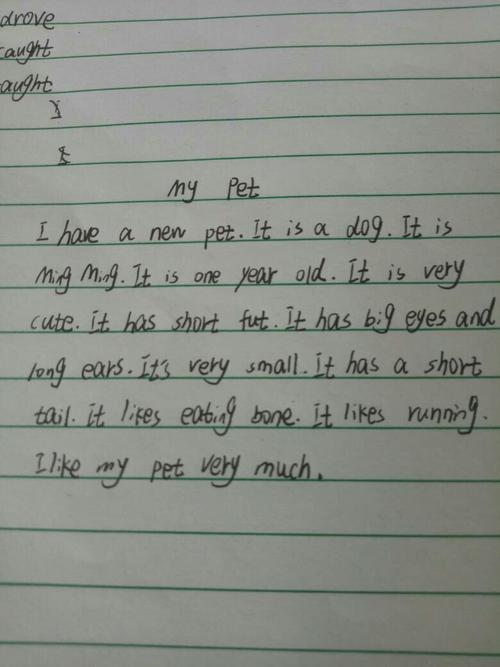 drove
caught
aught
My Pet
I have a new pet. It is a dog. It is
Ming Ming. It is one year old. It is very
cute. it has short fut. it has big eyes and
long ears. it's very small. it has a short
tail. it likes eating bone. it likes running.
I like my pet very much.